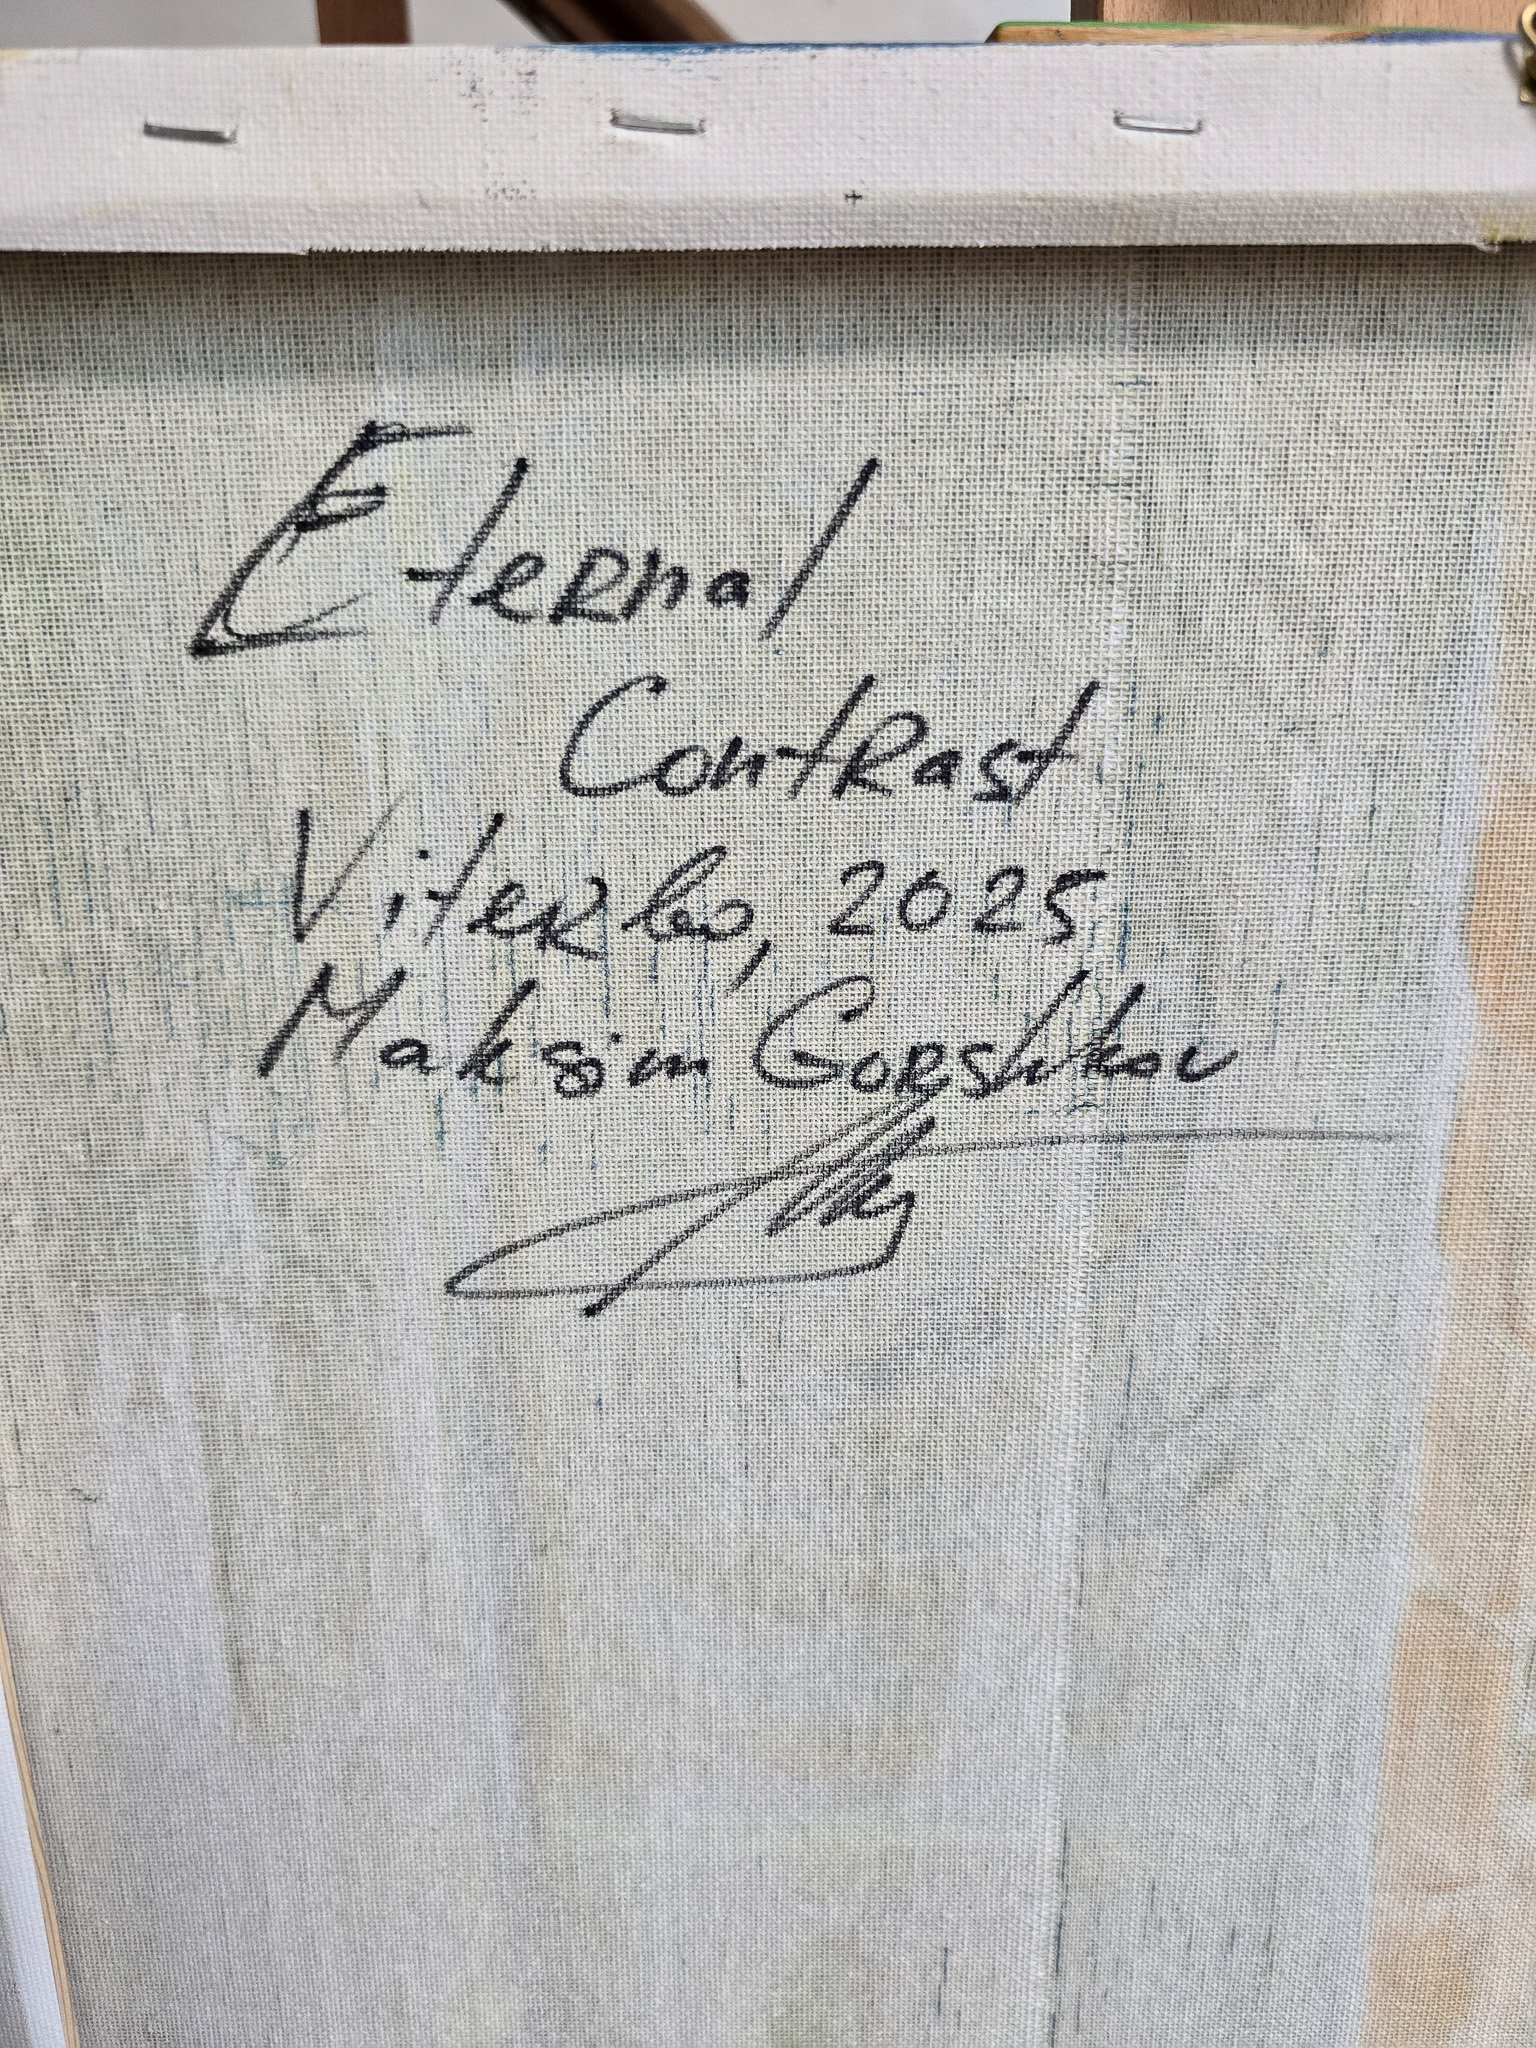 Eternal
Contrast
Viterbo, 2025
Maksim Gorshkov